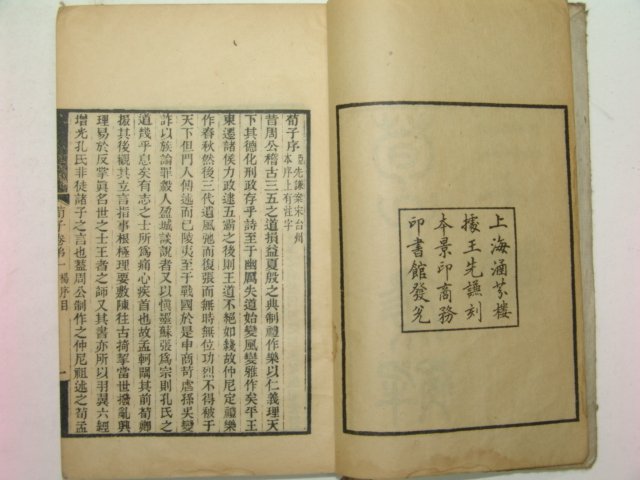 上海涵芬樓
據王先謙刻
本景印商務
印書館發兌
荀子序
先謙案宋台州
本序上有注字
昔周公稽古三五之道損益夏殷之典制禮作樂以仁義理天
下其德化刑政存乎詩至于幽厲失道始變風變雅作矣平王
東遷諸侯力政逮五霸之後則王道不絕如綫故仲尼定禮樂
作春秋然後三代遺風弛而復張而無時無位功烈不得被于
天下但門人傳述而已陵夷至于戰國於是申商苛虐孫吳變
詐以族論罪殺人盈城談說者又以慎墨蘇張爲宗則孔氏之
道幾乎息矣有志之士所爲痛心疾首也故孟軻闢其前荀卿
振其後觀其立言指事根極理要敷陳往古掎挈當世撥亂興
理易於反掌眞名世之士王者之師又其書亦所以羽翼六經
增光孔氏非徒諸子之言也蓋周公制作之仲尼祖述之荀孟
荀子卷第一 楊序目 一